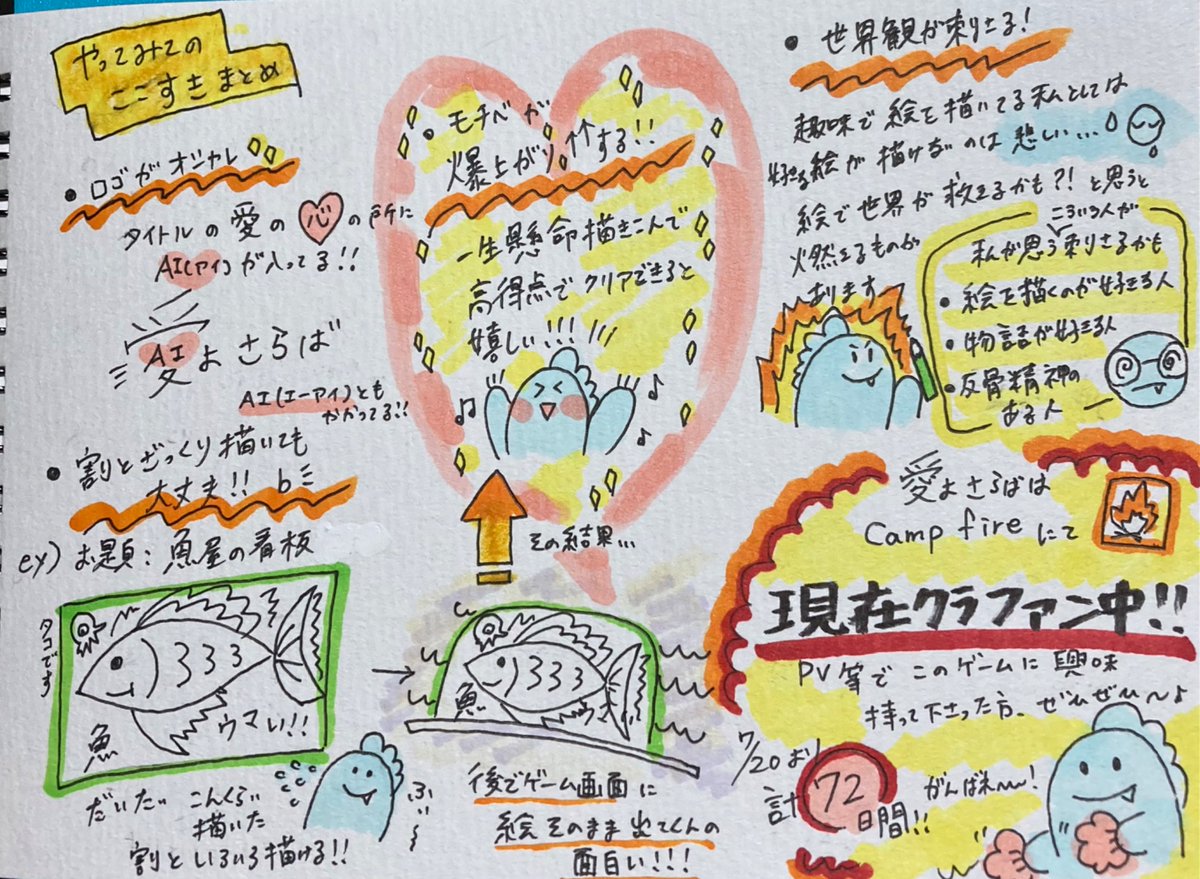 やってみての
ここすきまとめ
• ロゴがオシャレ
タイトルの愛の心の所に
AI(アイ)が入ってる!!
AI
愛よさらば
AI(エーアイ)とも
かかってる!!
• 割とざっくり描いても
大丈夫!! b
ex) お題:魚屋の看板
タコです
333
魚
ウマい!!
だいたい こんくらい
描いた
割といろいろ描ける!!
ふぃ〜
• モチベが
爆上がり↑↑する!!
一生懸命描きこんで
高得点でクリアできると
嬉しい!!!
その結果...
→
333
魚
後でゲーム画面に
絵そのまま出てくんの
面白い!!!
• 世界観が刺さる!
趣味で絵を描いてる私としては
好きな絵が描けないのは悲しい...
絵で世界が救えるかも?!と思うと
燃えるものが
あります
こういう人が
私が思う刺さるかも
• 絵を描くのが好きな人
• 物語が好きな人
• 反骨精神の
ある人
愛よさらばは
Camp fireにて
現在クラファン中!!
PV等でこのゲームに興味
持って下さった方、ぜひぜひ〜♪
7/20より
計72日間!!
がんばれ〜!